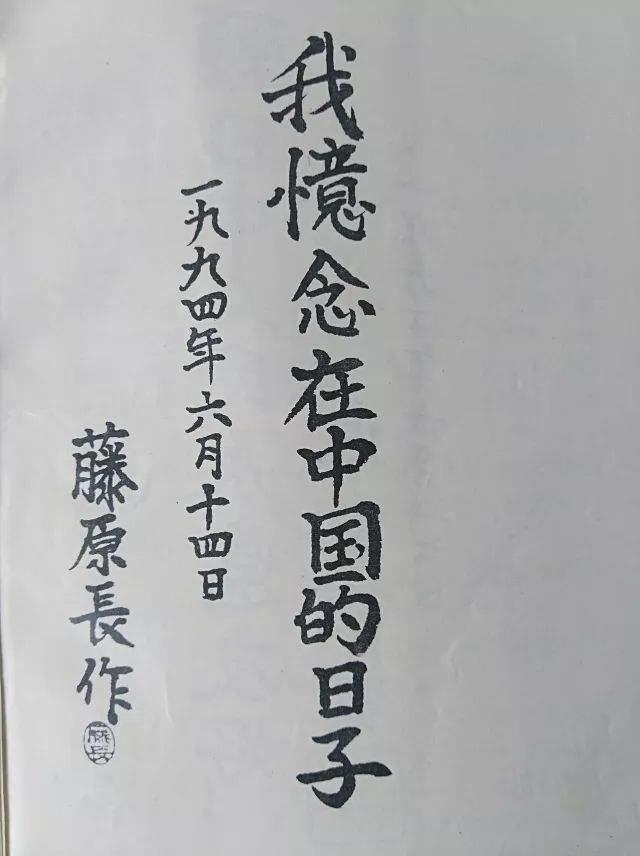 我憶念在中国的日子
一九九四年六月十四日
藤原長作